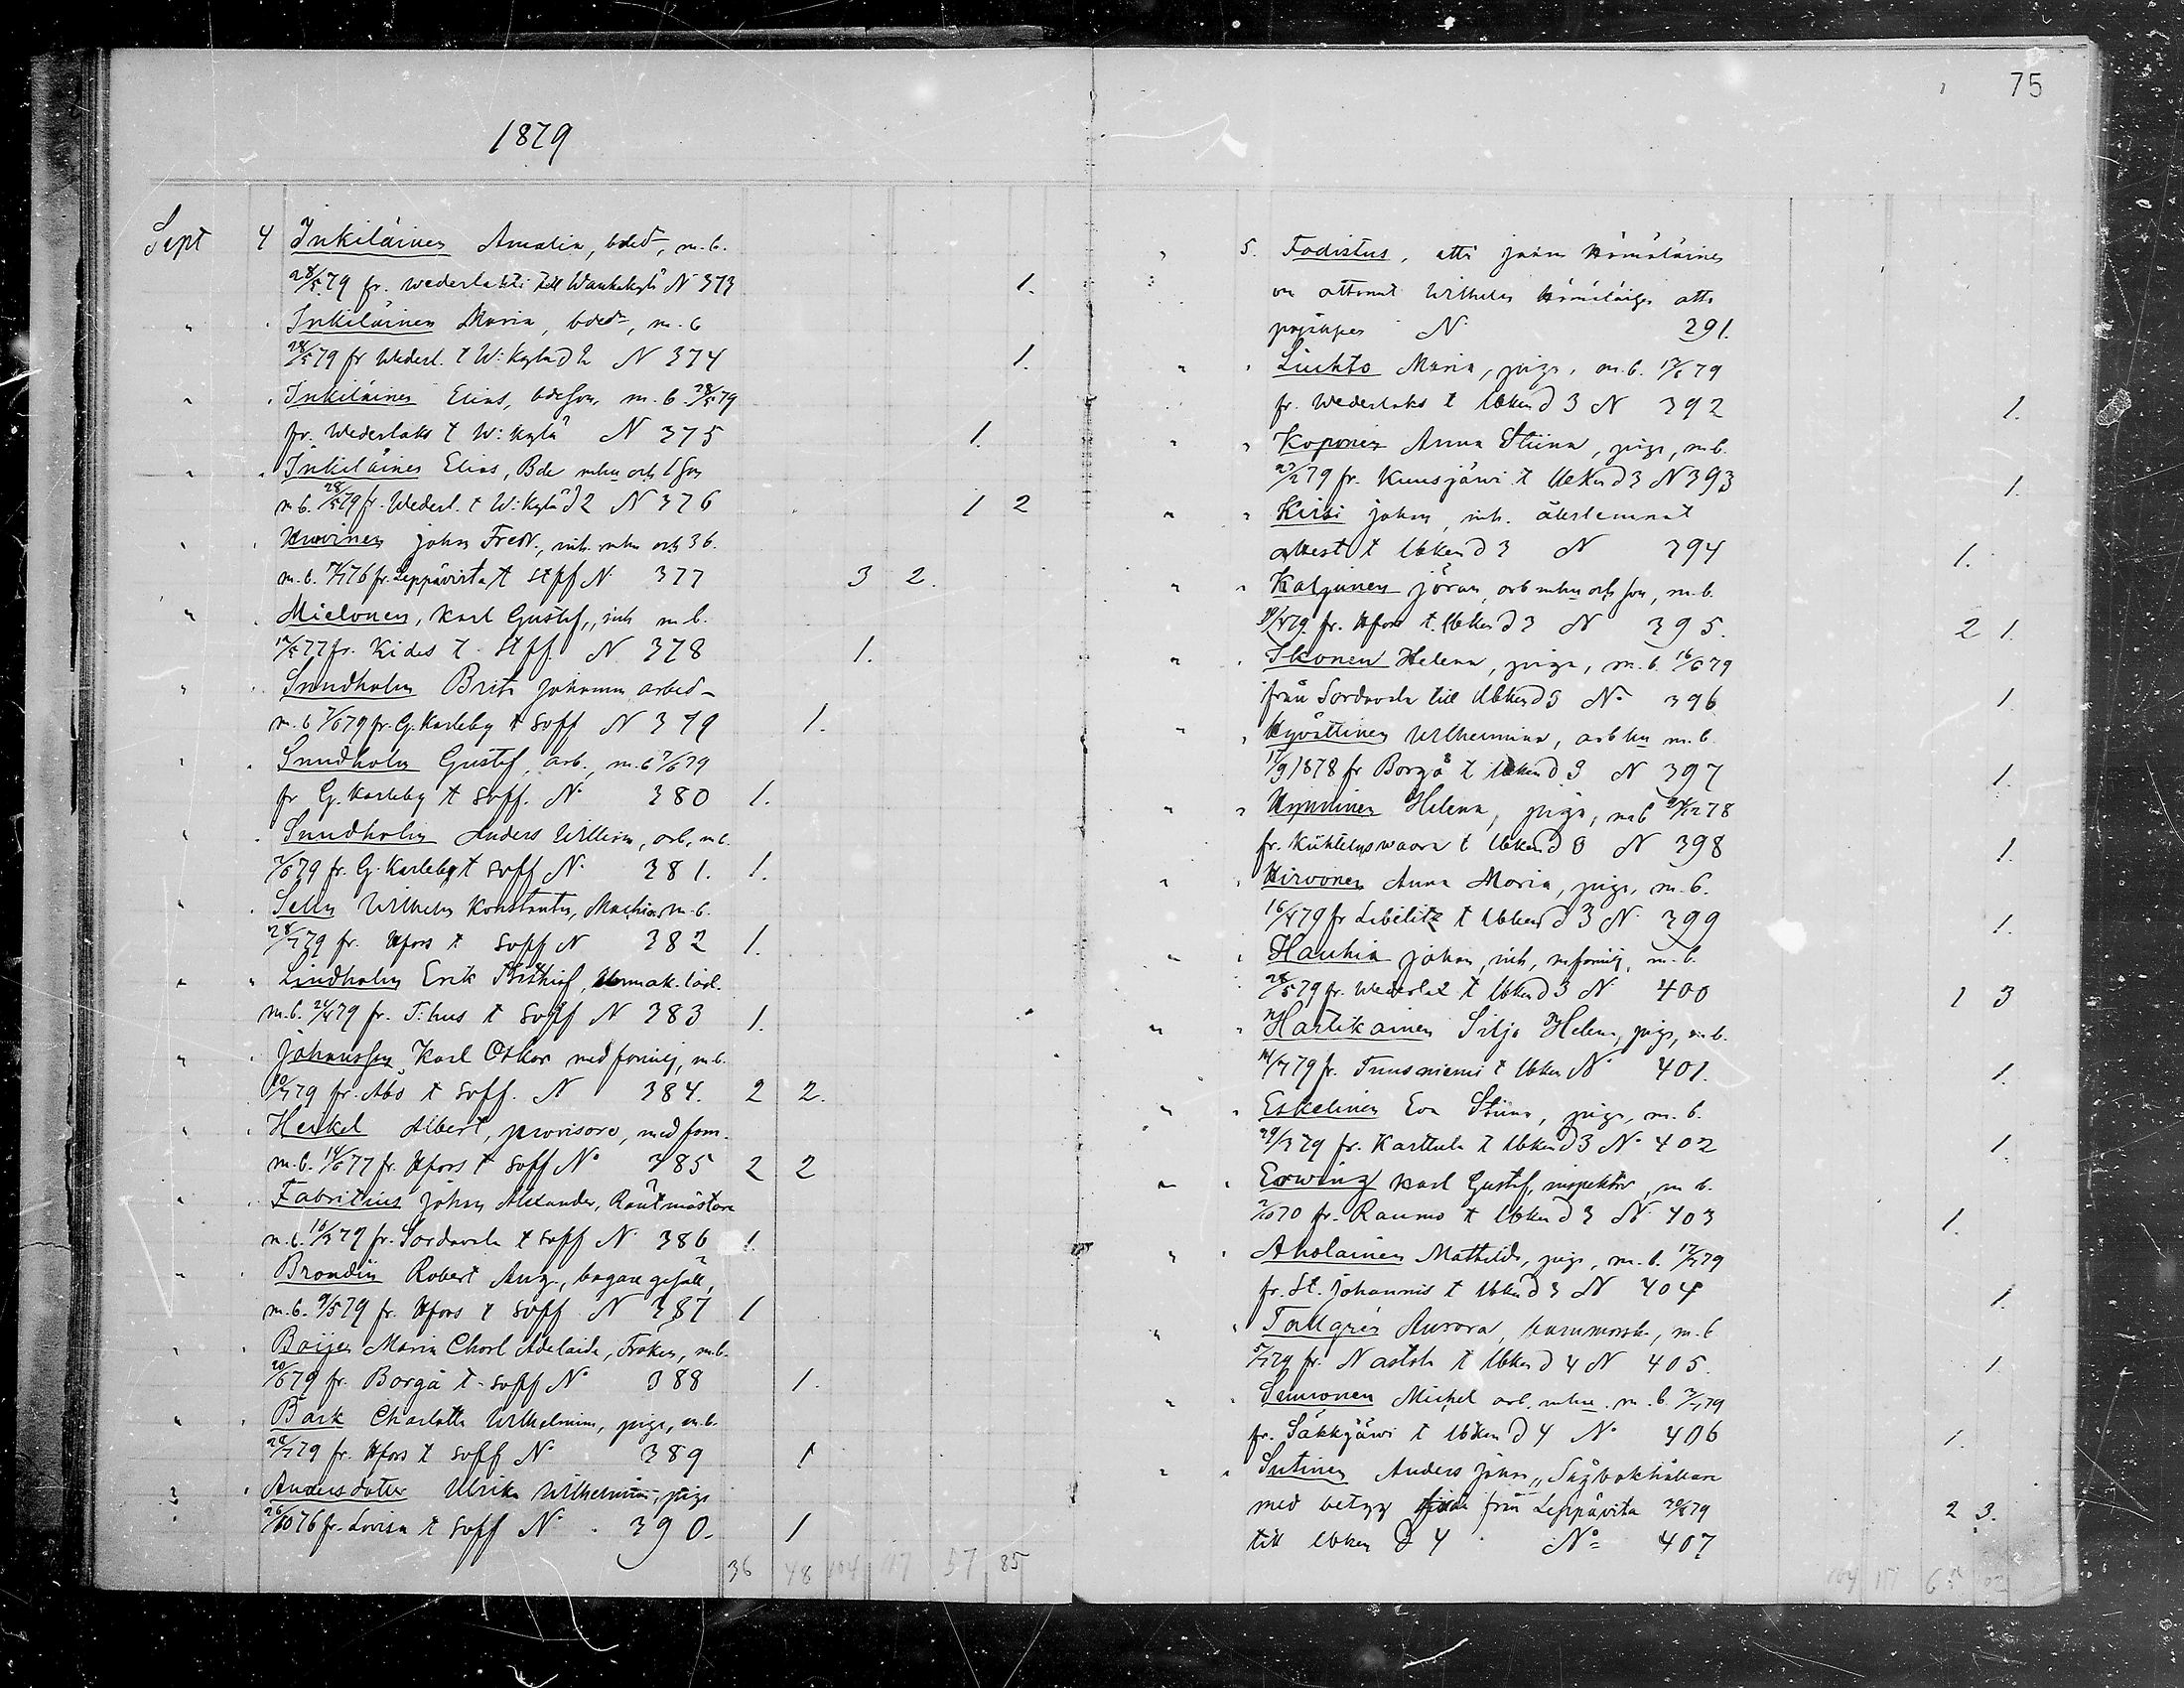 75
1879
Sept 4 Inkiläinen Amalia, bded-, m.b.
28/5 79 fr. Wederlahti till Wankakylä N 373 1.
" . Inkiläinen Maria, bded-, m.b
28/5 79 fr Wederl. t W:kylä d 2 N 374 1.
" . Inkiläinen Elias, bdeson, m.b. 28/5 79
fr. Wederlaks t W:kylä N 375 1.
" . Inkiläinen Elias, Bde mhu och 1 son
m b. 28/5 79 fr. Wederl. t W:kylä d 2 N 376 1 2
" . Huvinen Johan Fredr., inh. mhu och 3 b.
m.b. 76 fr. Leppävirta t stpf N. 377 3 2.
" . Mielonen, Karl Gustaf, inh m b.
17/5 77 fr. Kides t. stpf. N 378 1.
" . Sundholm Brita Johanna arbed-
m.b 7/6 79 fr. G.Karleby t soff N 379 1.
" . Sundholm Gustaf, arb., m.b 7/6 79
fr G. Karleby t soff. N. 380 1.
" . Sundholm Anders William, arb, m b.
7/6 79 fr. G. Karleby t soff N. 381. 1.
" . Selin Wilhelm Konstantin, Machin m.b.
28/7 79 fr. Hfors t soff N 382 1.
" " Lindholm Erik Frithiof, Urmak. lärl.
m.b. 24/4 79 fr. T:hus t soff N 383 1.
" . Johansson Karl Oskar med familj, m.b.
10/7 79 fr. Åbo t soff. N 384. 2 2.
" . Henkel Albert, provisor, med fam.
m.b. 14/6 77 fr. Hfors t soff No 385 2 2
" . Fabritius Johan Alexander, Rautmästare
m.b. 10/3 79 fr. Sordavala t soff N. 386 1.
" . Brondin Robert Aug., bagare gesäll,
m.b. 9/5 79 fr. Hfors t soff N 387 1
" . Boijer Maria Charl Adelaide, Fröken, m.b.
20/6 79 fr. Borgå t. soff No 388 1.
" . Bark Charlotta Wilhelmina, piga, m.b.
28/7 79 fr. Hfors t soff No 389 1
" . Andersdotter Ulrika Wilhelmina, piga
26/10 76 fr. Lovisa t soff No. 390. 1
36 48 104 117 57 85
" 5. Todistus, että Jaana Hämäläinen
on ottanut Wilhelm Hämäläisen otto
pojakseen N. 291.
" . Liuhto Maria, piga, m.b. 17/6 79
fr. Wederlaks t Ubken d 3 N 392 1.
" " Koponen Anna Stiina, piga, m.b.
27/2 79 fr. Kuusjärvi t Ubken d 3 N 393 1.
" " Kirsi Johan, inh. återlemnat
attest t Ubken d 3 N 394 1.
" " Kalpinen Jöran, arb mhu och son, m.b.
30/4 79. fr. Hfors t. Ubken d 3 N 395. 2 1.
" . Ikonen Helena, piga, m.b. 16/6 79
från Sordavala till Ubken d 3 No 396 1
" . Hyvättinen Wilhelmina, arb hu m.b.
17/9 1878 fr Borgå t Ubken d 3 N 397 1.
" " Hynninen Helena, piga, m b 28/12 78
fr. Kiihtelyswaara t Ubken d 3 N 398 1.
" . Hirvonen Anna Maria, piga, m.b.
16/4 79 fr Libelitz t Ubken d 3 N. 399 1.
" . Hauhia Johan, inh, m familj, m.b.
28/5 79 fr. Wederlax t Ubken d 3 N 400 1 3
" . Hartikainen Silja Helena, piga, m.b.
14/7 79 fr. Tuusniemi t Ubken N. 401. 1.
" . Eskelinen Eva Stiina, piga, m.b.
29/3 79 fr. Karttula t Ubken d 3 N. 402 1.
" . Erwing Karl Gustaf, inspektor, m b.
2/10 70 fr. Raumo t Ubken d 3 N 403 1.
" . Aholainen Mathilda, piga, m.b. 17/7 79
fr. St. Johannis t Ubken d 3 N 404 1.
" . Tallgren Aurora, barnmorsk, m.b
5/7 79 fr. Nastola t Ubken d 4 N 405. 1.
" . Simonen Michel arb. mhu. m.b. 79
fr. Säkkjärvi t Ubken d 4 No 406 1.
" . Sutinen Anders Johan, Sågbokhållare
med betyg från Leppävirta 30/6 79 2 3.
till Ubken d 4 No= 407
104 117 65